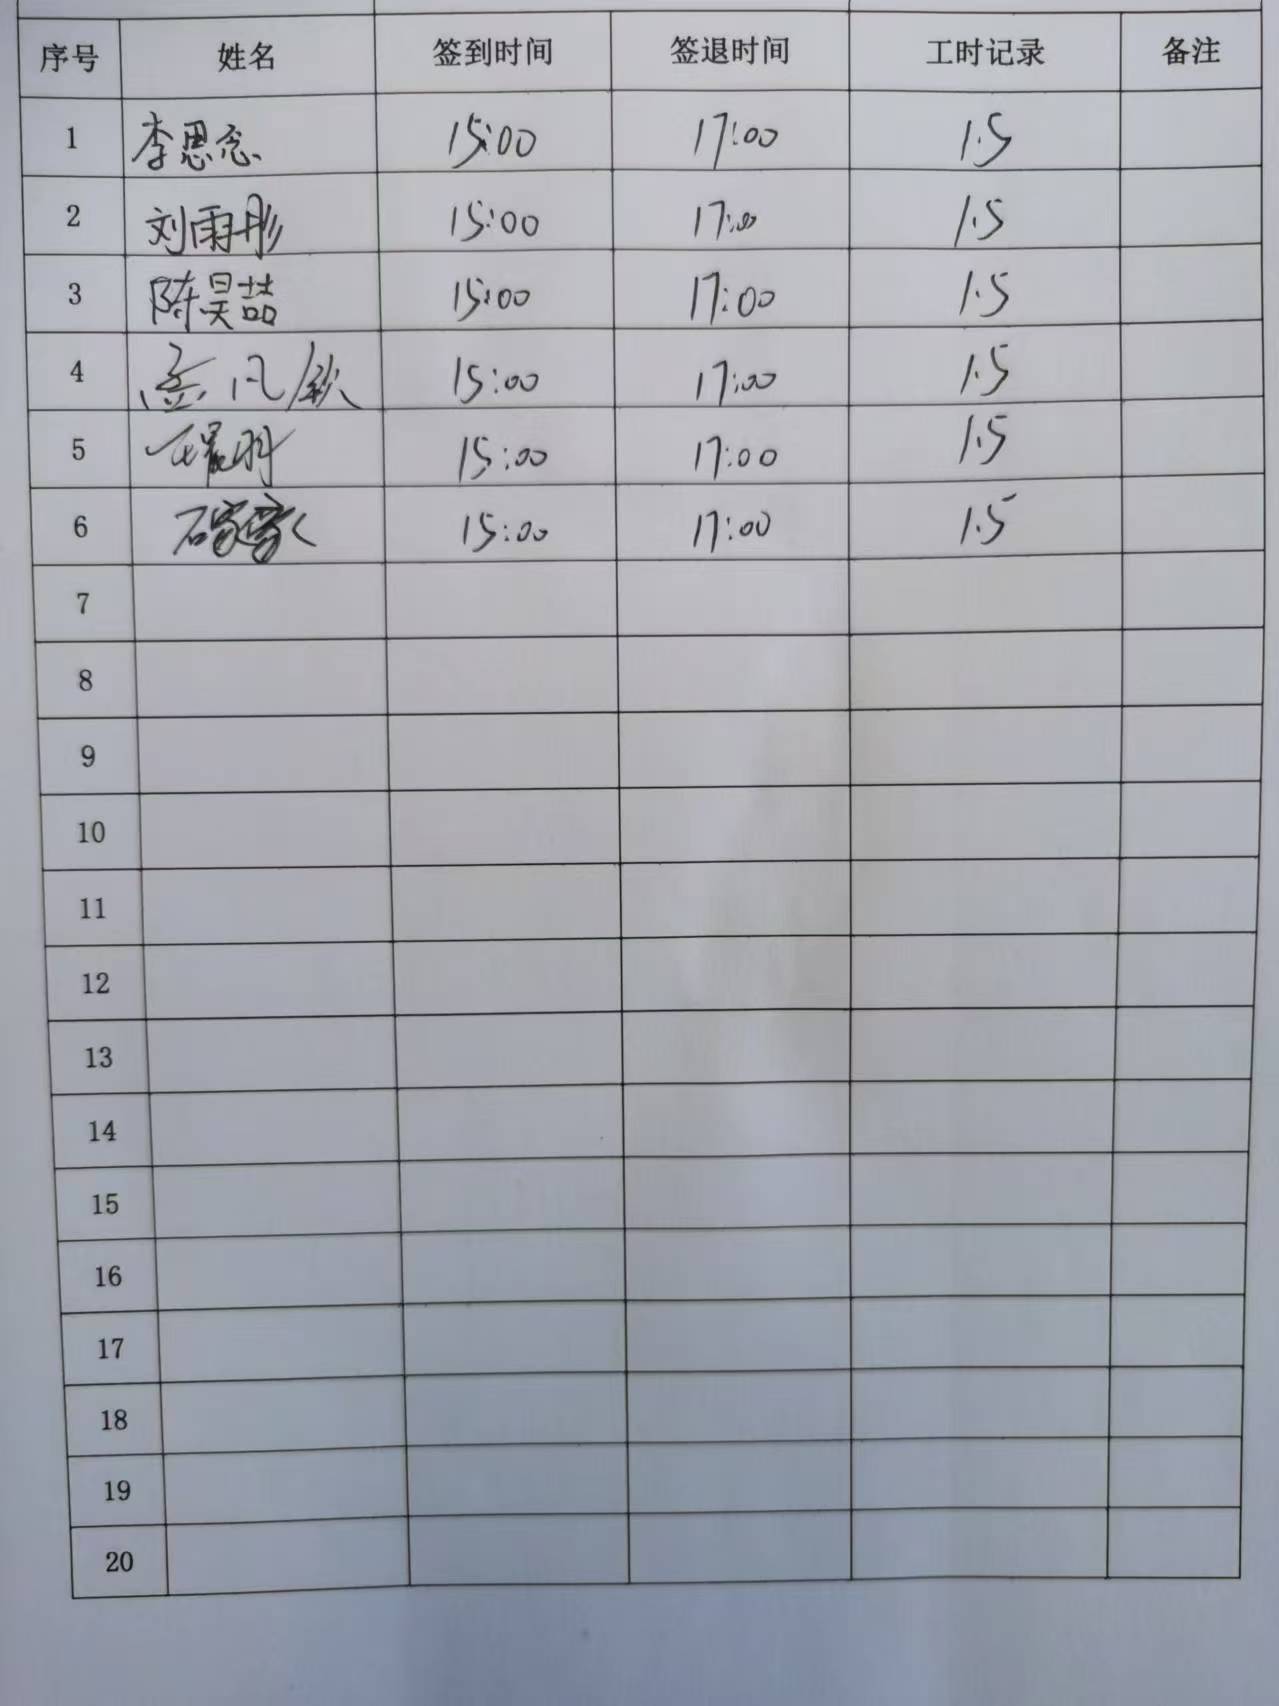 序号 姓名 签到时间 签退时间 工时记录 备注
1 李思念 15:00 17:00 1.5
2 刘雨彤 15:00 17:00 1.5
3 陈昊喆 15:00 17:00 1.5
4 15:00 17:00 1.5
5 15:00 17:00 1.5
6 15:00 17:00 1.5
7
8
9
10
11
12
13
14
15
16
17
18
19
20